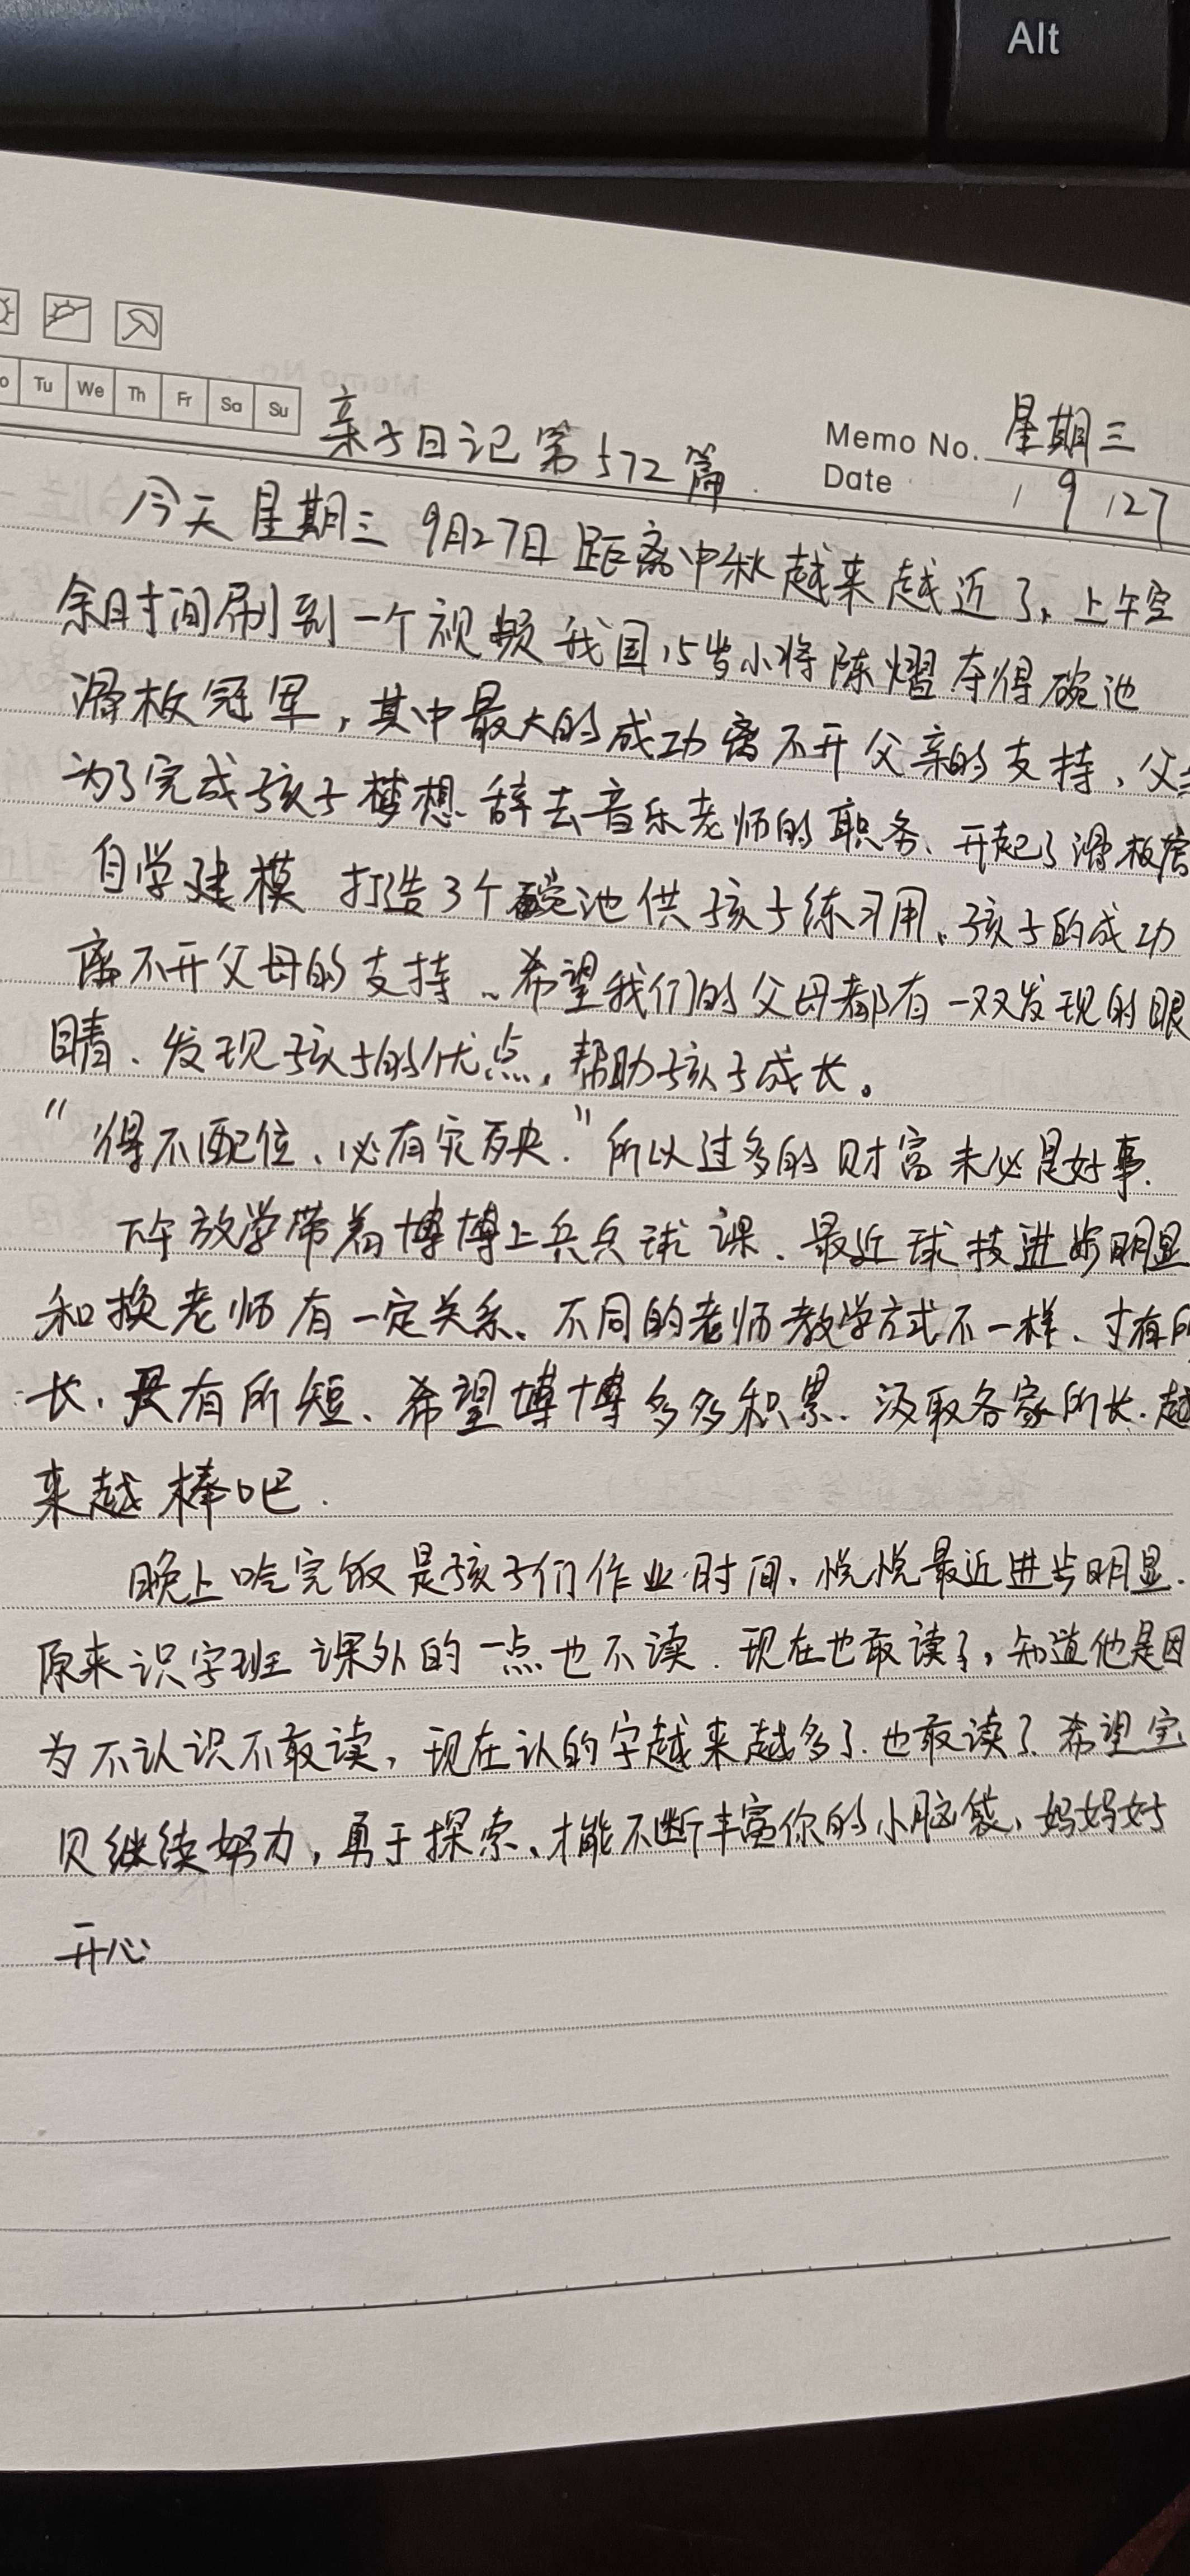 Alt
Tu We Th Fr Sa Su
亲子日记第572篇
Memo No. 星期三
Date / 9 /27
今天星期三 9月27日距离中秋越来越近了,上午空
余时间刷到一个视频我国15岁小将陈熠夺得碗池
滑板冠军,其中最大的成功离不开父亲的支持、父
为了完成孩子梦想辞去音乐老师的职务、开起了滑板
自学建模 打造3个碗池供孩子练习用、孩子的成功
离不开父母的支持、希望我们的父母都有一双发现的眼
睛、发现孩子的优点,帮助孩子成长。
“得不配位、必有灾殃.”所以过多的财富未必是好事.
下午放学带着博博上兵乓球课、最近球技进步明显
和换老师有一定关系、不同的老师教学方式不一样、寸有
长、尺有所短、希望博博多多积累、汲取各家所长.越
来越棒吧.
晚上吃完饭是孩子们作业时间、悦悦最近进步明显.
原来识字班课外的一点也不读.现在也敢读了,知道他是因
为不认识不敢读,现在认的字越来越多了.也敢读了希望宝
贝继续努力,勇于探索、才能不断丰富你的小脑袋、妈妈好
开心